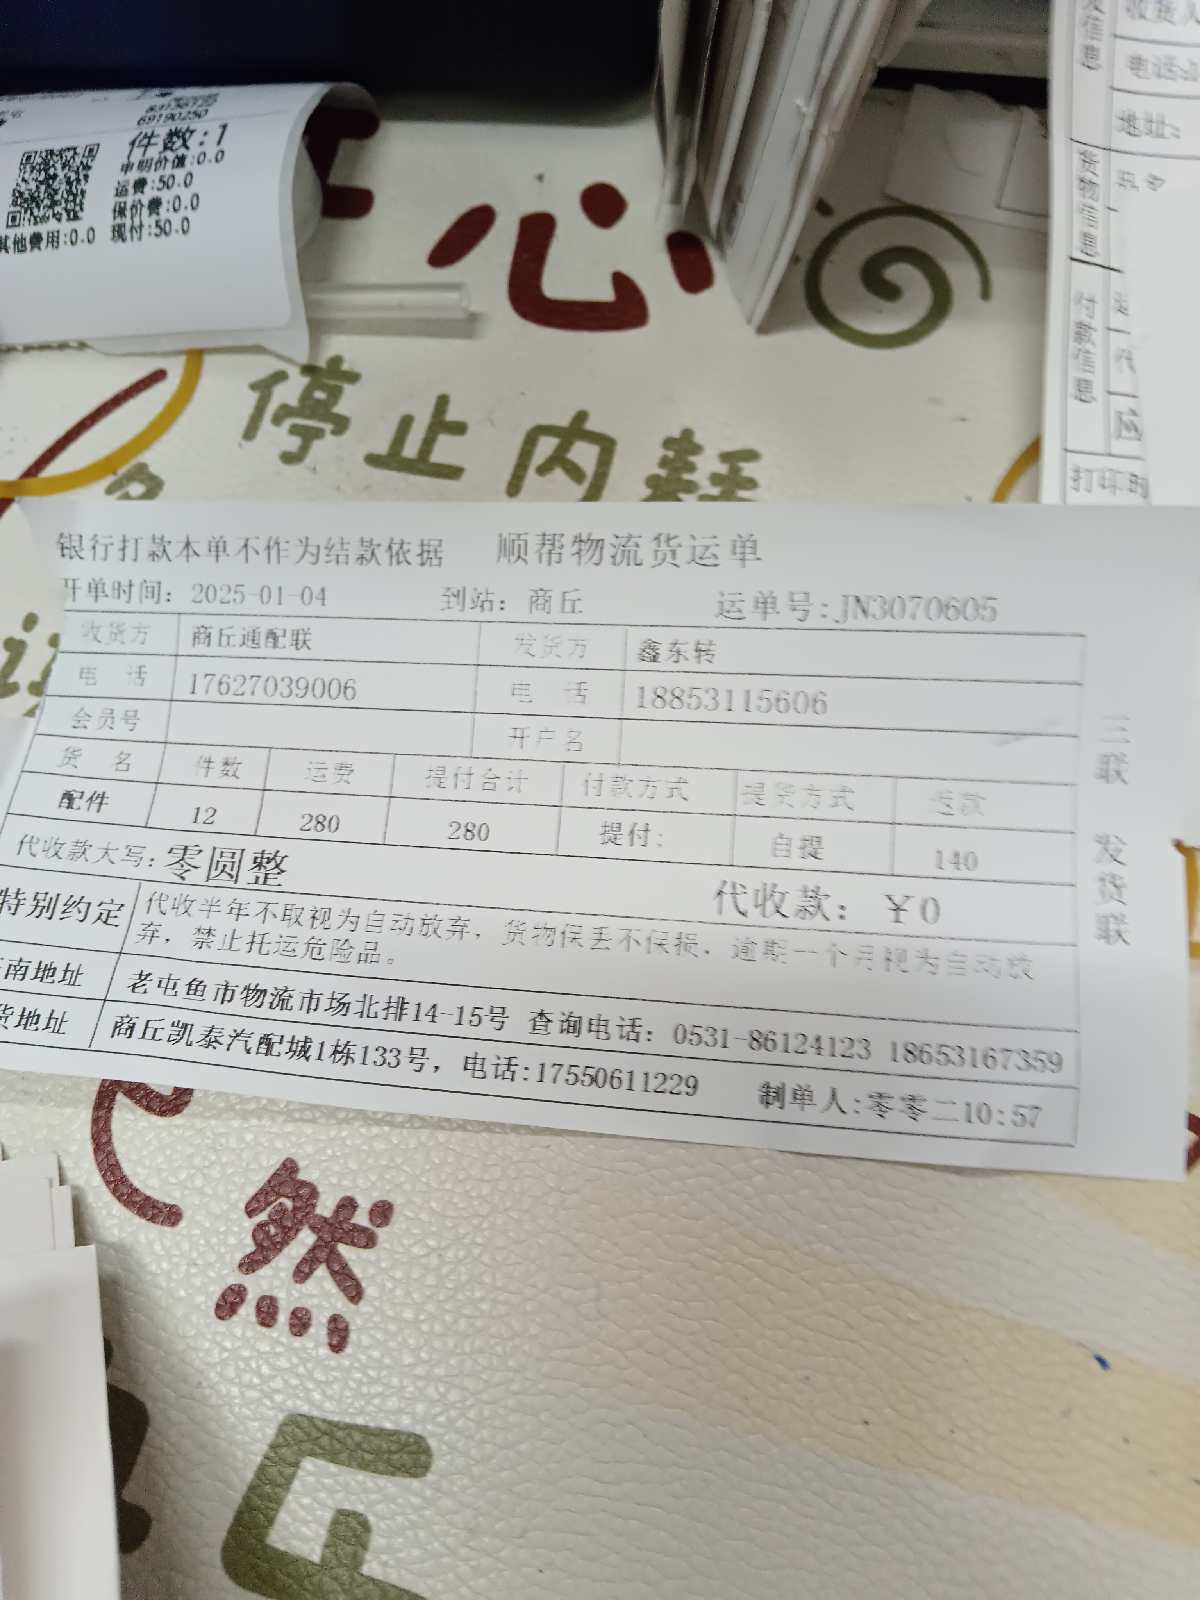 69190250
件数:1
申明价值:0.0
运费:50.0
保价费:0.0
其他费用:0.0 现付:50.0
收货人
信息
电话:
地址:
货物信息
付款信息
代
应
打印时
心
停止内耗
银行打款本单不作为结款依据 顺帮物流货运单
开单时间: 2025-01-04 到站: 商丘 运单号:JN3070605
收货方 商丘通配联 发货方 鑫东转
电 话 17627039006 电 话 18853115606
会员号 开户名
货 名 件数 运费 提付合计 付款方式 提货方式
配件 12 280 280 提付: 自提 140
代收款大写:零圆整 代收款: ¥0
特别约定 代收半年不取视为自动放弃，货物保丢不保损，逾期一个月视为自动放
弃，禁止托运危险品。
南地址 老屯鱼市物流市场北排14-15号 查询电话: 0531-86124123 18653167359
货地址 商丘凯泰汽配城1栋133号，电话:17550611229 制单人:零零二10:57
三联 发货联
然